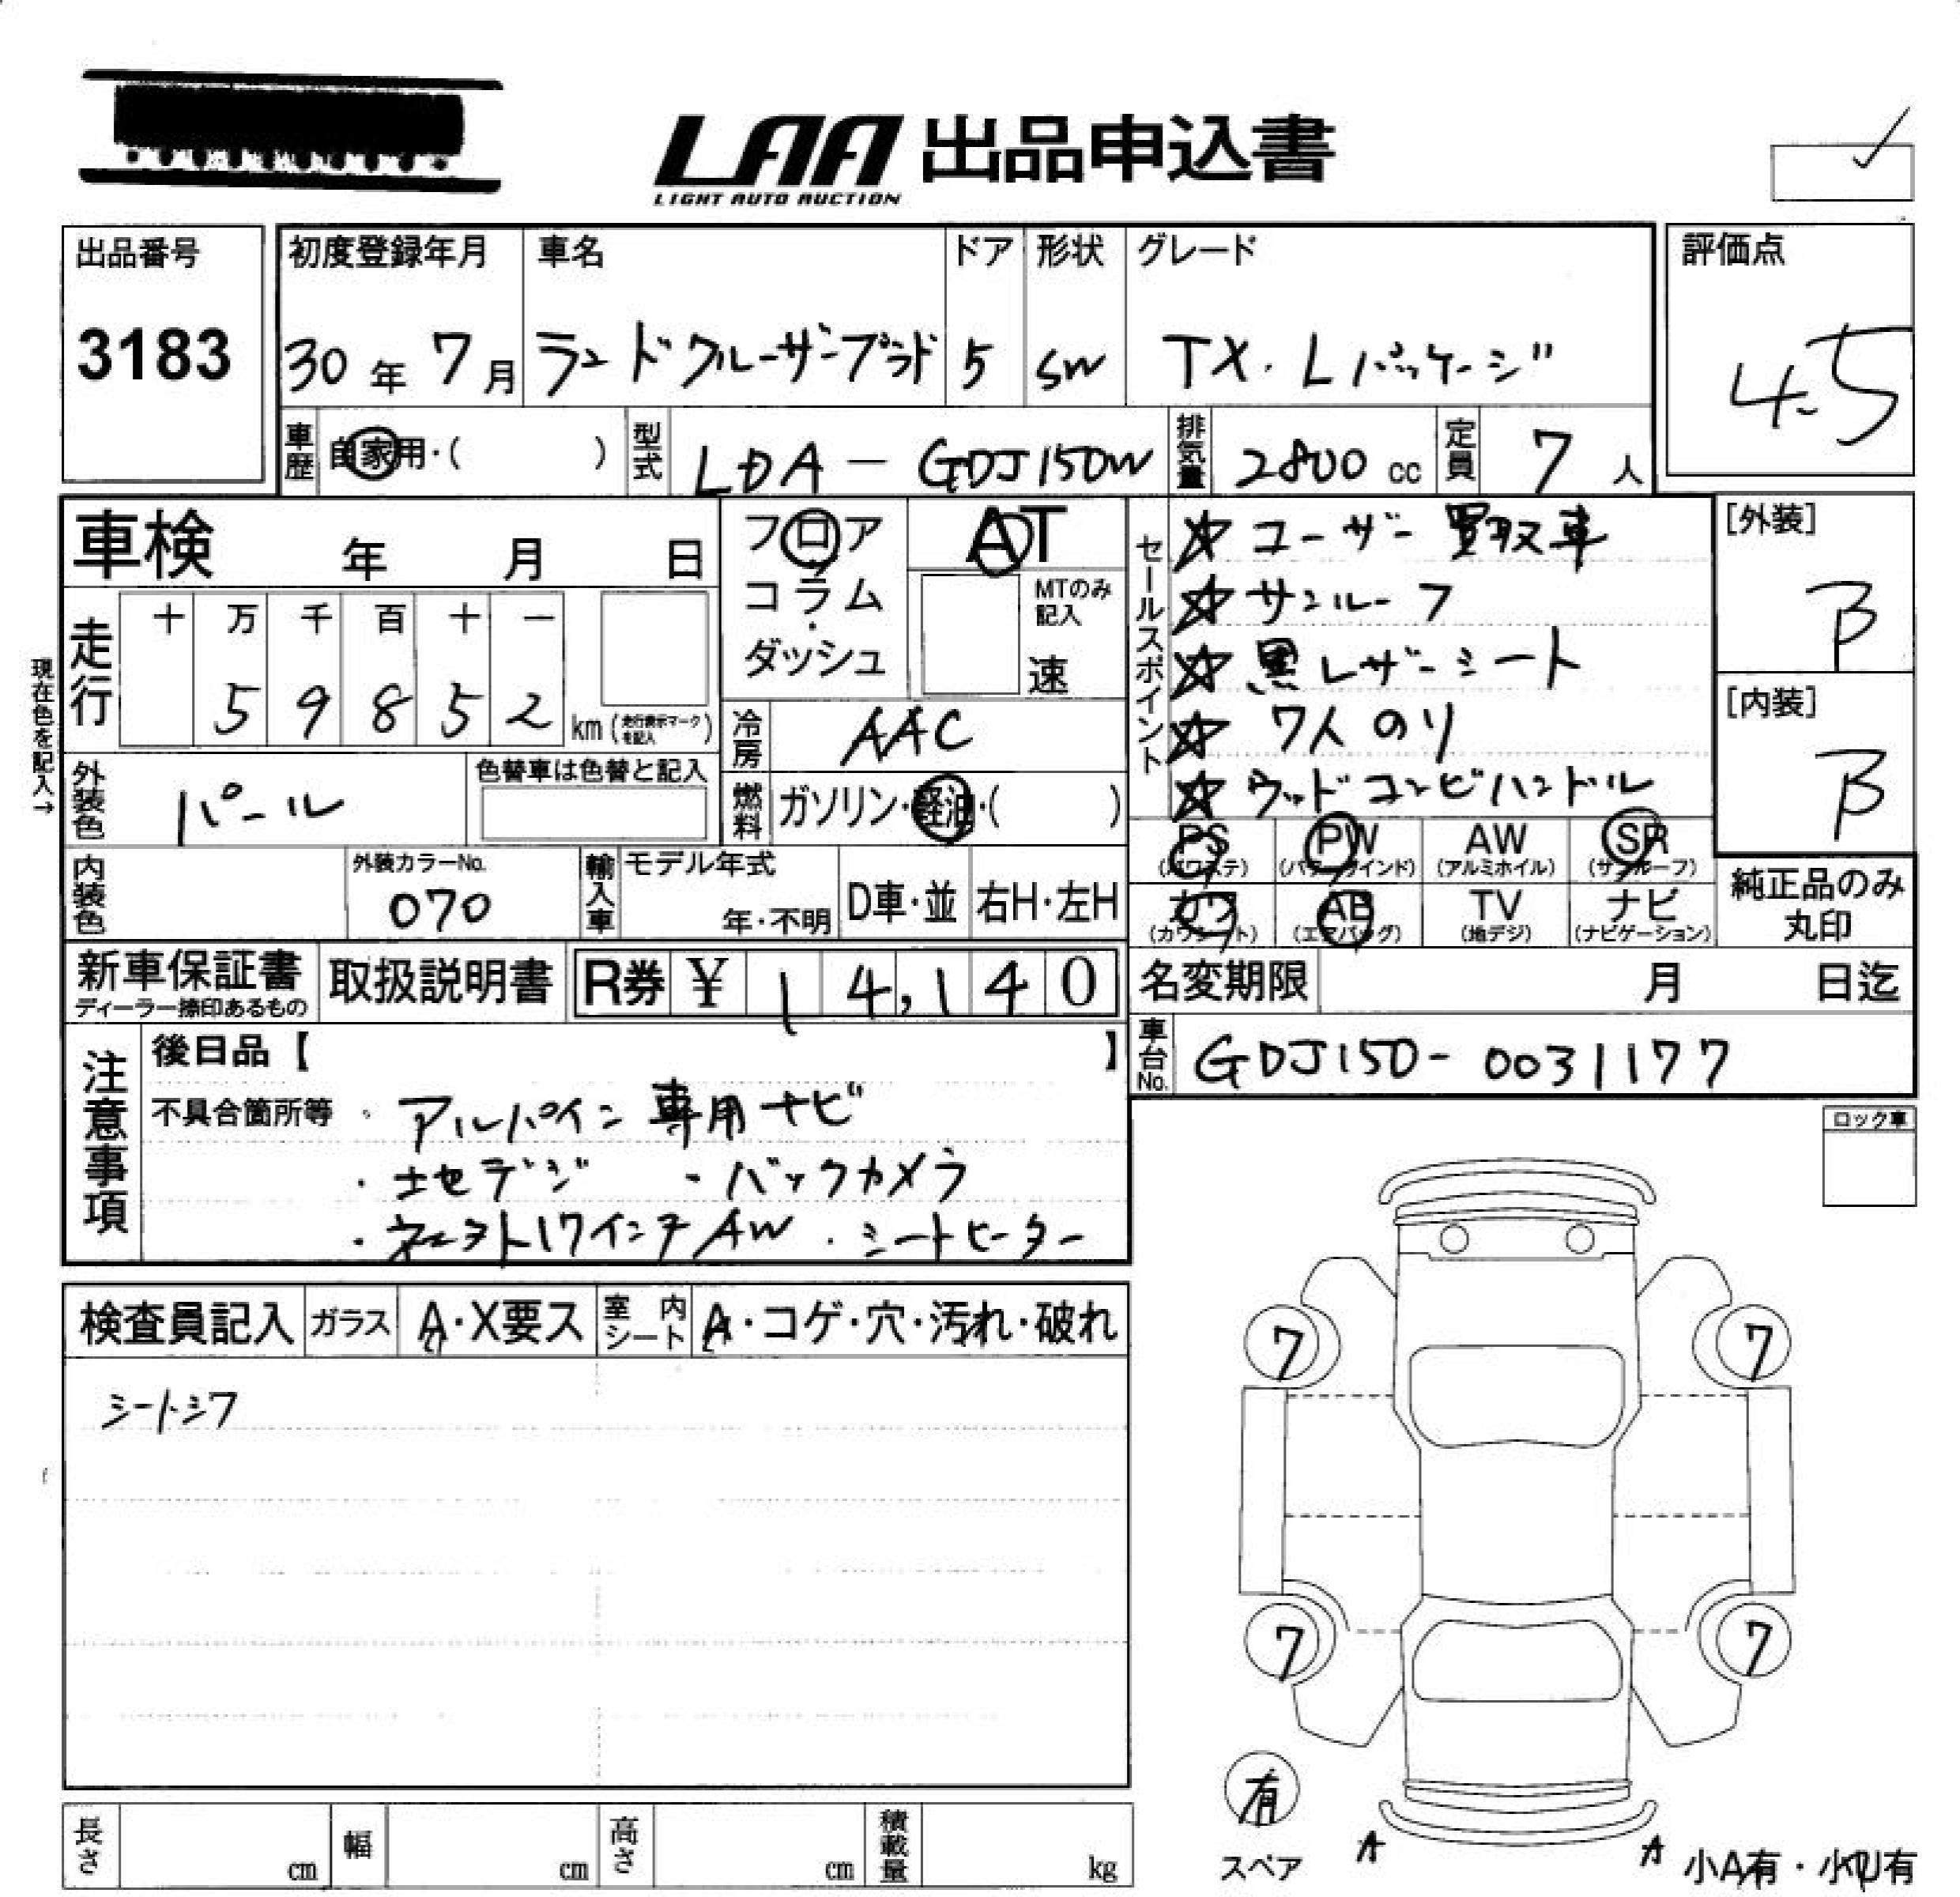 LAA 出品申込書
LIGHT AUTO AUCTION
出品番号
3183
初度登録年月
30年 7月
車名
ランドクルーザープラド
ドア
5
形状
SW
グレード
TX.Lパッケージ
評価点
4.5
車歴 自家用・( )
型式 LDA-GDJ150W
排気量 2800 cc
定員 7 人
車検 年 月 日
フロア
コラム
・
ダッシュ
AT
MTのみ
記入
速
現在色を記入→
走行
十 万 千 百 十 一
5 9 8 5 2
km (走行表示マークを記入)
冷房 AAC
外装色 パール
色替車は色替と記入
燃料 ガソリン・軽油・( )
内装色
外装カラーNo.
070
輸入車
モデル年式
年・不明
D車・並
右H・左H
セールスポイント
☆ユーザー買取車
☆サンルーフ
☆黒レザーシート
☆7人のり
☆ウッドコンビハンドル
[外装]
B
[内装]
B
PS (パワステ)
PW (パワーウインド)
AW (アルミホイル)
SR (サンルーフ)
カワ (カワシート)
AB (エアバッグ)
TV (地デジ)
ナビ (ナビゲーション)
純正品のみ
丸印
新車保証書
ディーラー捺印あるもの
取扱説明書
R券 ¥ 14,140
名変期限 月 日迄
車台No. GDJ150-0031177
注意事項
後日品【 】
不具合箇所等 ・アルパイン専用ナビ
・地デジ ・バックカメラ
17インチAW ・シートヒーター
ロック車
検査員記入
ガラス A・X要ス
室内シート A・コゲ・穴・汚れ・破れ
シートシワ
7
7
7
7
有
スペア
A
A
小A有・小U有
長さ cm
幅 cm
高さ cm
積載量 kg